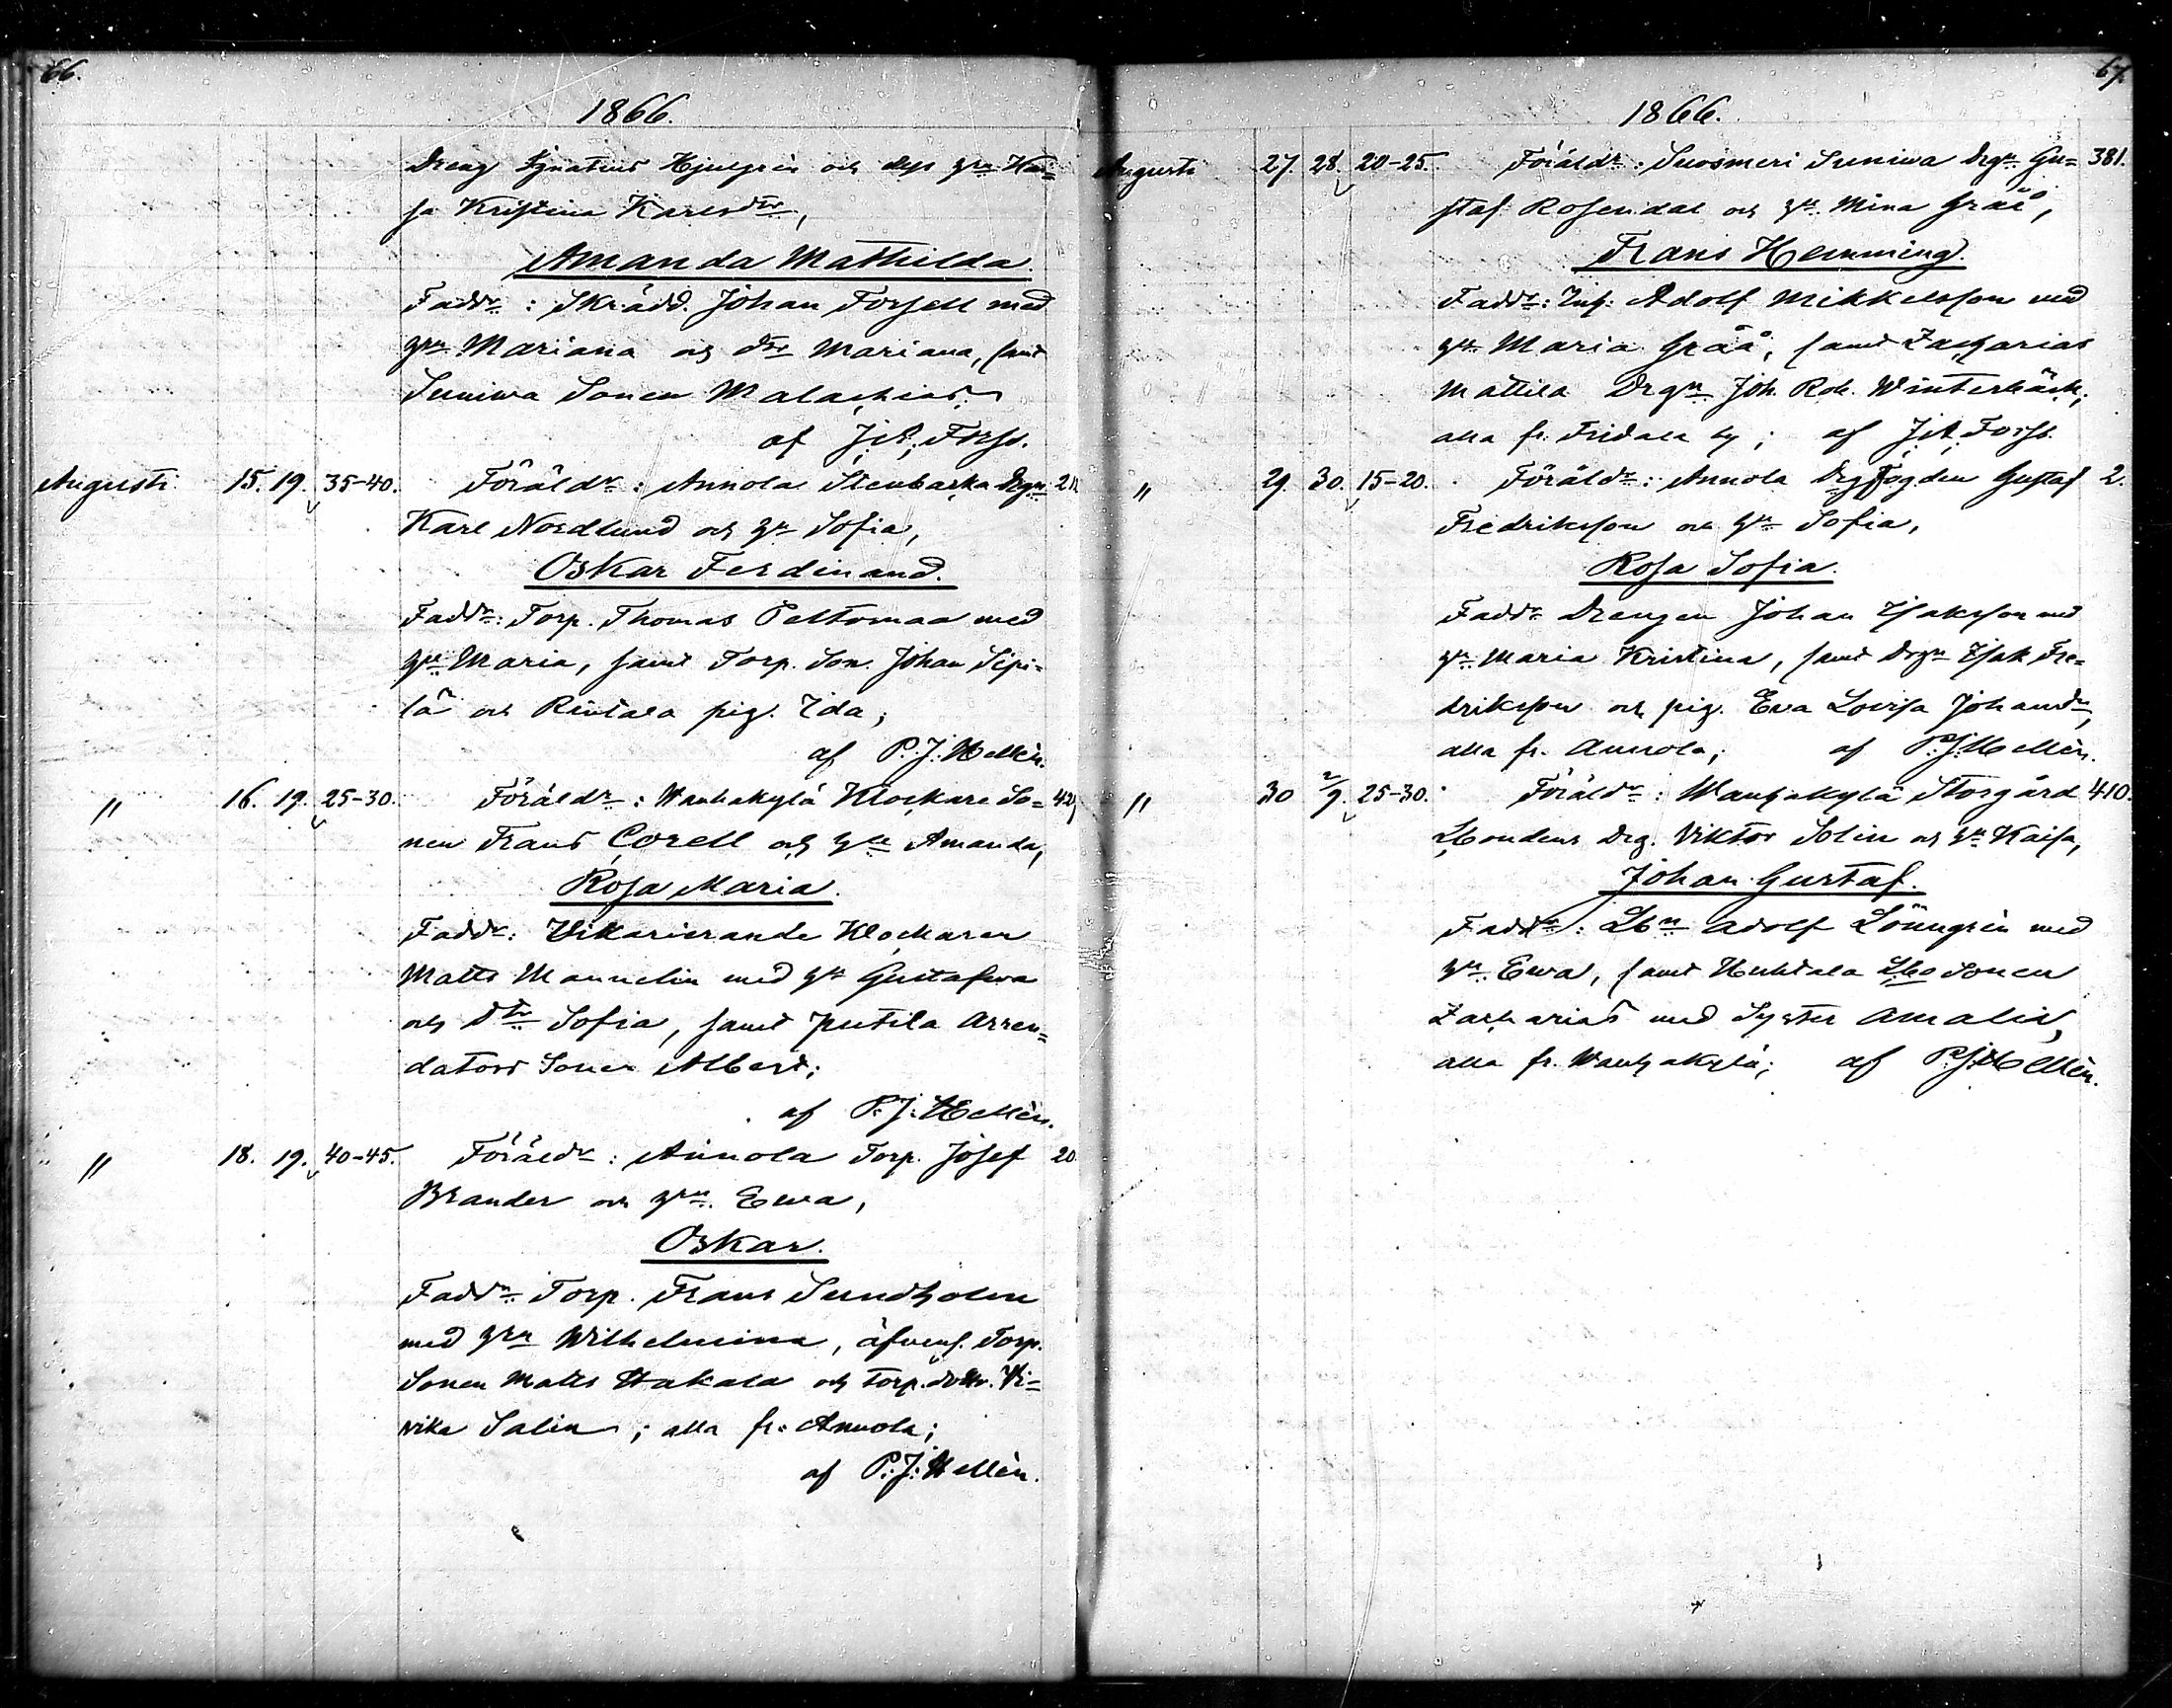 66.
1866.
Dreng Ignatius Hjulgrén och dess hru Kai=
sa Kristina Karlsdtr,
Amanda Mathilda.
Faddr: Skrädd. Johan Forsell med
hru Mariana och dtr Mariana, samt
Suniwa Sonen Malachias
af J.A. Forss.
Augusti 15. 19. 35-40. Föräldr: Annola Stenbacka Drgn 21
Karl Nordlund och h. Sofia,
Oskar Ferdinand.
Faddr: Torp. Thomas Peltomaa med
h. Maria, samt Torp. Son. Johan Sipi=
lä och Rintala pig. Ida;
af P.J. Hellén.
" 16. 19. 25-30. Föräldr: Wanhakylä Klockare So= 42
nen Frans Corell och h. Amanda,
Rosa Maria.
Faddr: Vikarierande Klockaren
Matts Mannelin med h. Gustafwa
och dtr Sofia, samt Jutila Arren=
dators Sonen Albert;
af P.J. Hellén.
" 18. 19. 40-45. Föräldr: Annola Torp. Josef 20
Brander och hru Ewa,
Oskar.
Faddr: Torp. Frans Sundholm
med hru Wilhelmina, äfvens. Torp.
Sonen Matts Hakala och Torp. dottr. Vi=
vika Salin; alla fr. Annola;
af P.J. Hellén.
67.
1866.
Augusti 27. 28. 20-25. Föräldr: Suosmeri Suniwa Drgn Gu= 381.
staf Rosendal och h. Mina Gråå,
Frans Hemming.
Faddr: Inh. Adolf Mikkelsson med
h. Maria Gråå, samt Zacharias
Mattila Drgn Joh. Rob. Winterbäck;
alla fr. Fridala by; af J.A. Forss.
" 29. 30. 15-20. Föräldr: Annola Drgfogden Gustaf 2.
Fredriksson och h. Sofia,
Rosa Sofia.
Faddr Drengen Johan Isaksson med
h. Maria Kristina, samt Drgn Isak Fre=
driksson och pig. Eva Lovisa Johansdr,
alla fr. Annola; af P.J. Hellén.
" 30 2/9. 25-30. Föräldr: Wanhakylä Storgård 410.
Lbondens Drg. Viktor Solin och h. Kaisa,
Johan Gustaf.
Faddr: Lbn Adolf Lönngrén med
h. Ewa, samt Huhtala Lbo Sonen
Zacharias med Syster Amalia,
alla fr. Wanhakylä; af P.J. Hellén.